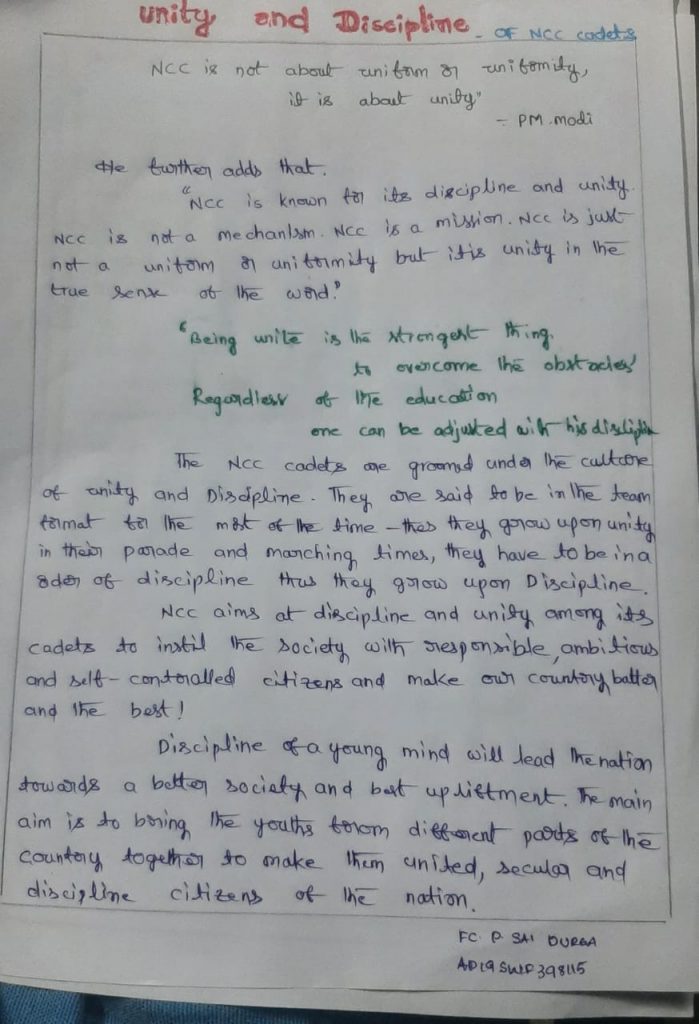 unity and Discipline - OF NCC cadets
NCC is not about uniform or uniformity,
it is about unity"
- PM. modi
He further adds that.
"NCC is known for its discipline and unity.
NCC is not a mechanism. NCC is a mission. NCC is just
not a uniform or uniformity but it is unity in the
true sense of the word."
"Being unite is the strongest thing.
to overcome the obstacles'
Regardless of the education
one can be adjusted with his discipline
The NCC cadets are groomed under the culture
of unity and Discipline. They are said to be in the team
format for the most of the time - thus they grow upon unity
in their parade and marching times, they have to be in a
order of discipline thus they grow upon Discipline.
NCC aims at discipline and unity among its
cadets to instil the society with responsible, ambitious
and self-controlled citizens and make our country batter
and the best!
Discipline of a young mind will lead the nation
towards a better society and best upliftment. The main
aim is to bring the youths from different parts of the
country together to make them united, secular and
discipline citizens of the nation.
FC. P. SAI DURGA
AP19SWF398115